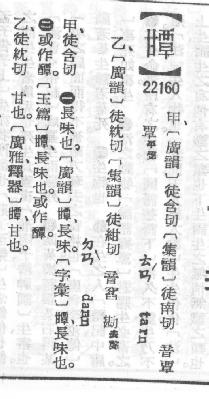 【曋】 22160
甲〔廣韻〕徒含切〔集韻〕徒南切 音覃
覃平聲
ㄊㄢˊ tarn
乙〔廣韻〕徒紞切〔集韻〕徒紺切 音 勘去聲
ㄉㄢˋ dann
甲、徒含切 ㊀長味也。〔廣韻〕曋、長味。〔字彙〕曋、長味也。
㊁或作醰。〔玉篇〕曋、長味也。或作醰。
乙、徒紞切 甘也。〔廣雅釋器〕曋、甘也。